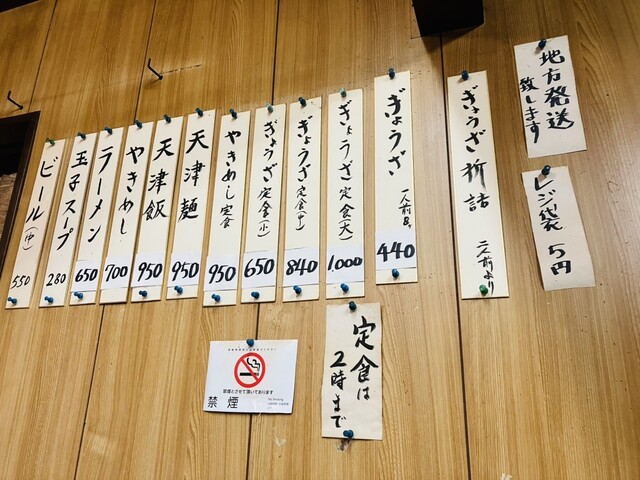 地方発送
致します
レジ袋 5円
ぎょうざ折詰 二人前より
ぎょうざ 一人前8ヶ 440
ぎょうざ定食(大) 1,000
ぎょうざ定食(中) 840
ぎょうざ定食(小) 650
やきめし定食 950
天津麺 950
天津飯 950
やきめし 700
ラーメン 650
玉子スープ 280
ビール(中) 550
定食は
2時まで
禁煙とさせて頂いております
禁煙
No Smoking